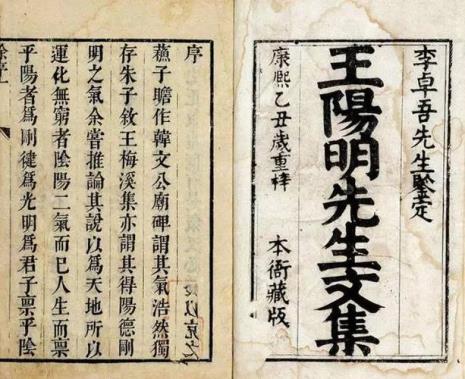 李卓吾先生鑒定
王陽明先生文集
康熙乙丑歲重梓
本衙藏版
序
蘓子瞻作韓文公廟碑謂其氣浩然獨
存朱子敘王梅溪集亦謂其得陽德剛
明之氣余嘗推論其說以爲天地所以
運化無窮者陰陽二氣而已人生而禀
乎陽者爲剛健爲光明爲君子禀乎陰